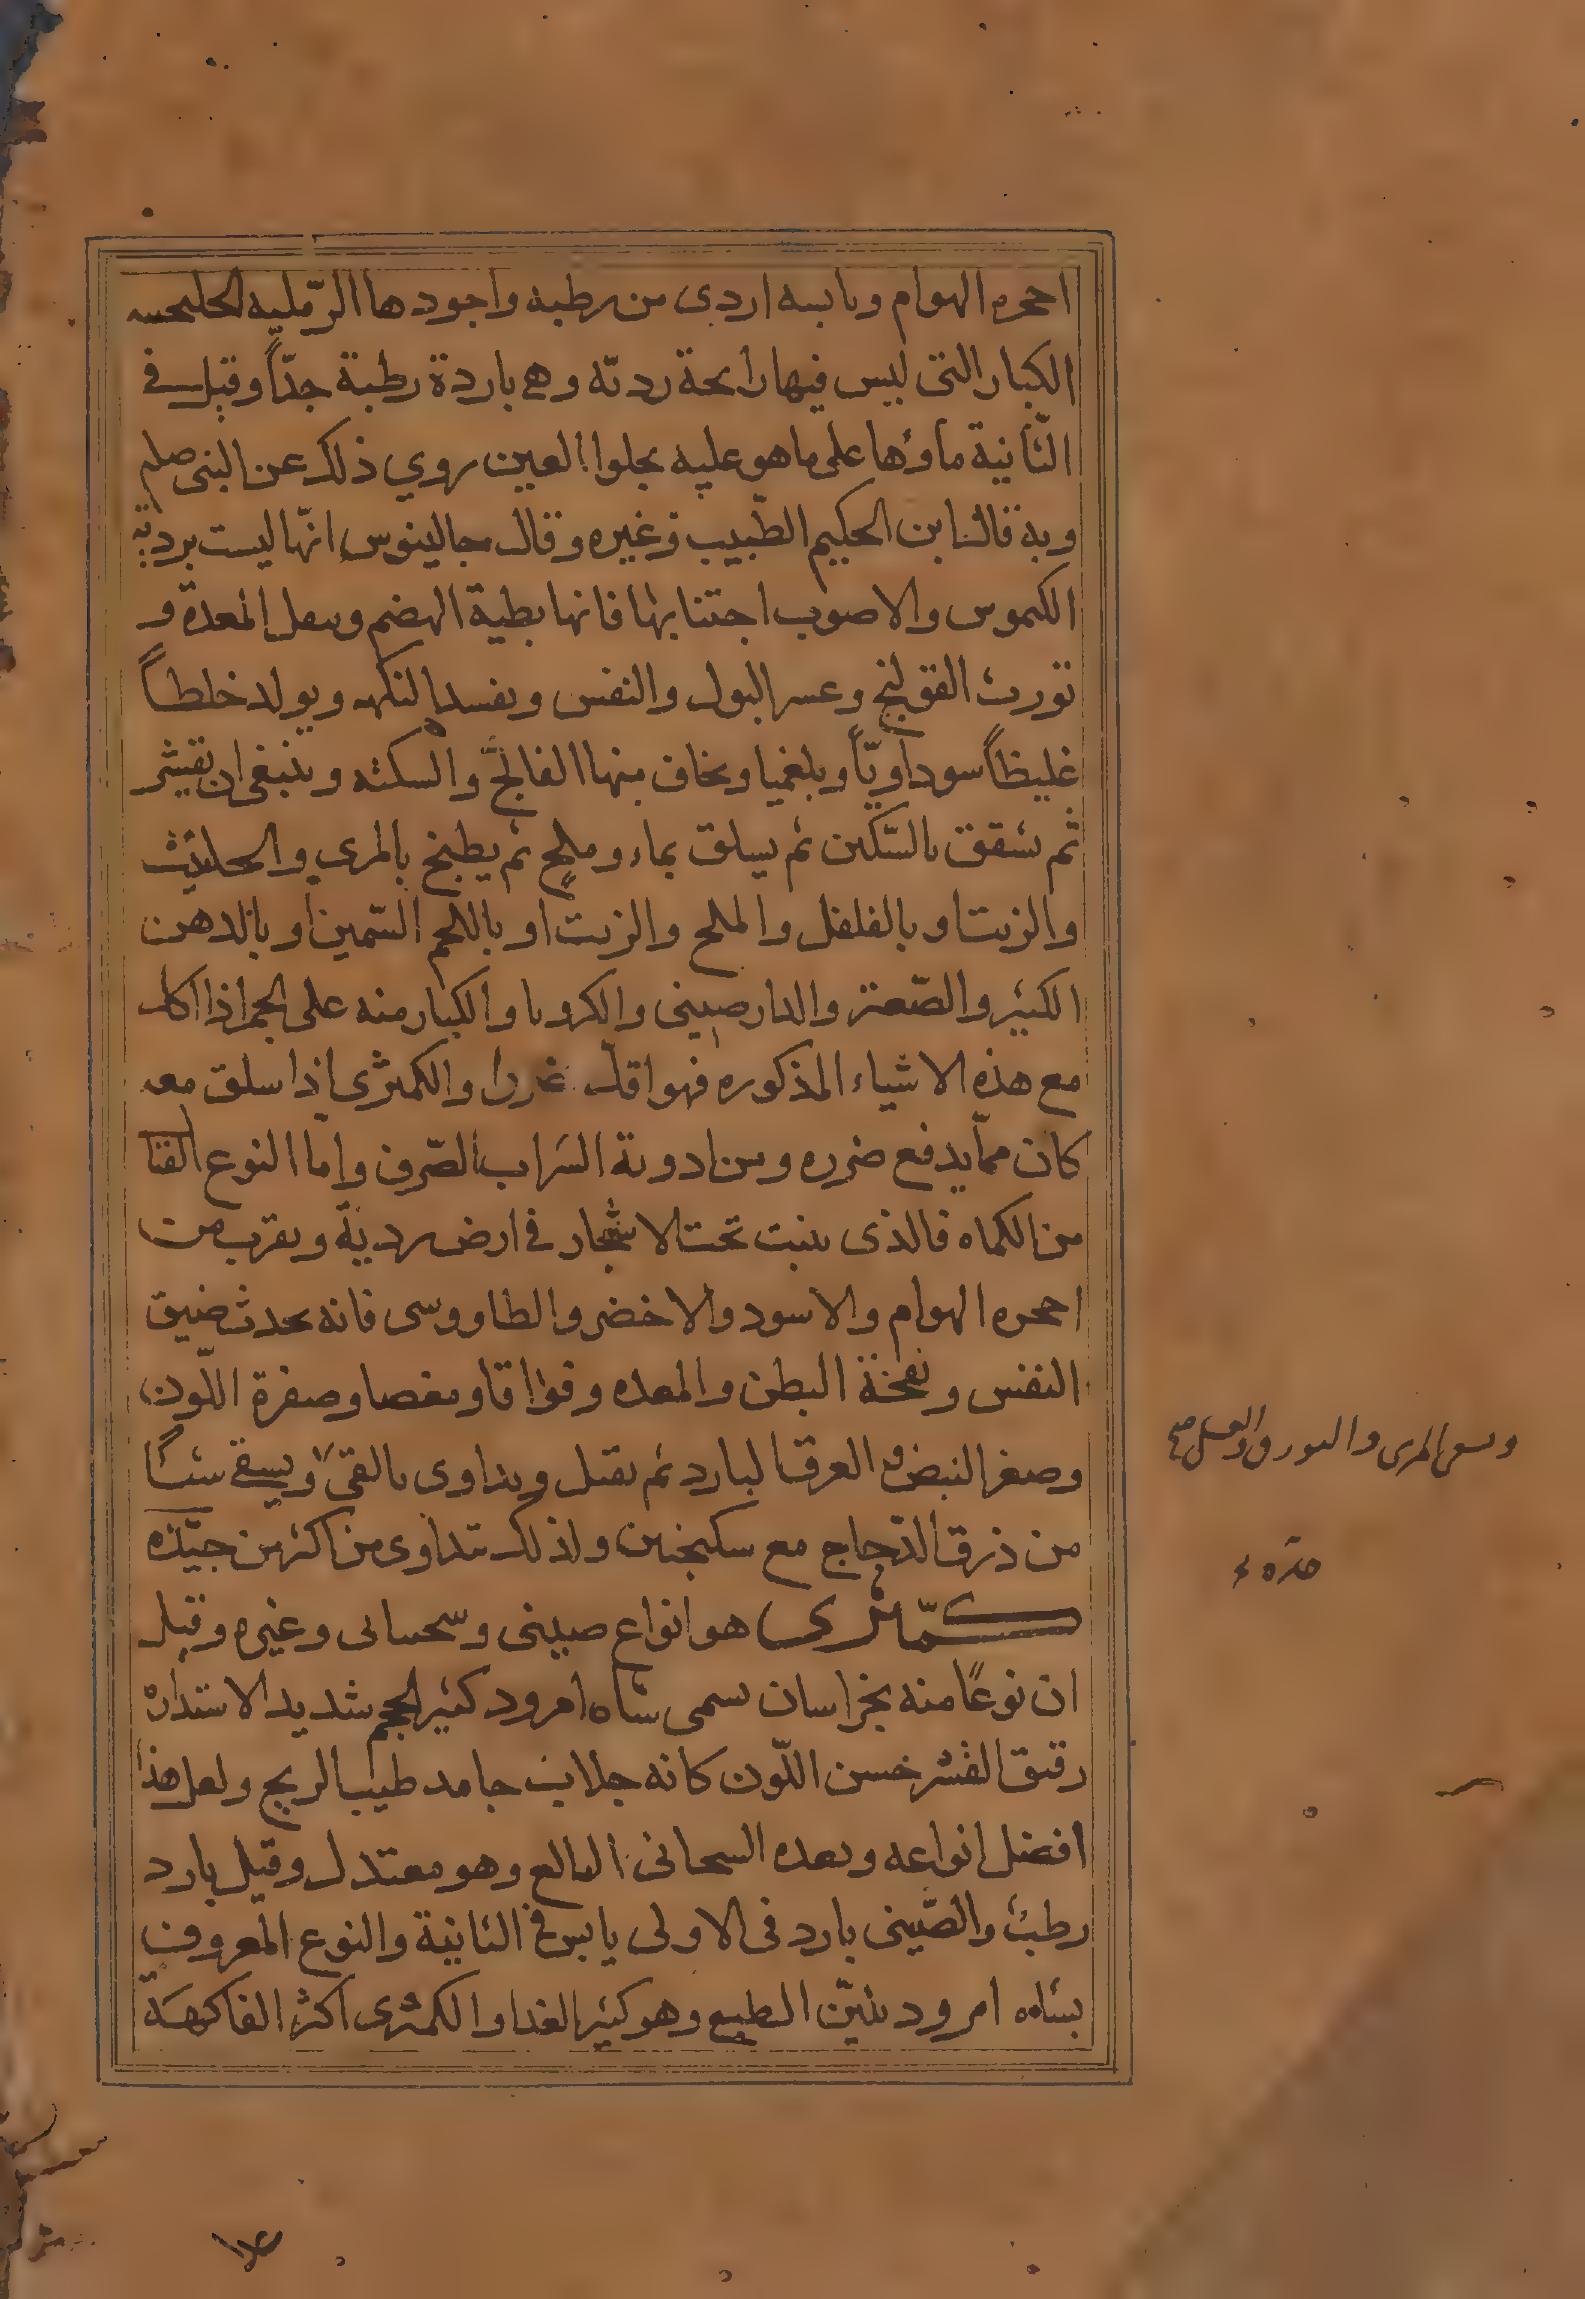 احجره الهوام ويابسه اردى من رطبه واجودها الرّمليه
الكبار التى ليس فيها رايحة رديّه وهى باردة رطبة جدّاً وقيل فى
الثّانية ماؤها على ما هو عليه يجلوا العين روي ذلك عن النبى صلم
وبه قال ابن الحكيم الطّبيب وغيره وقال جالينوس انّها ليست برديّة
الكيموس والاصوب اجتنابها فانها بطية الهضم وتثقل المعدة و
تورث القولنج وعسر البول والنفس ويفسد النكهه ويولد خلطاً
غليظاً سوداويّاً وبلغميا ويخاف منها الفالج والسكته وينبغى ان يقشر
ثم يشقق بالسّكين ثم يسلق بماء وملح ثم يطبخ بالمري والحلتيت
والزيت او بالفلفل والملح والزيت او باللحم السّمين او بالدهن
الكثير والصّعتر والدارصينى والكرويا والكبار منه على الجمر اذا اكل
مع هذه الاشياء المذكوره فهو اقل والكمثرى اذا سلق معه
كان ممّا يدفع ضرره ومن ادويته الشراب الصّرف وامّا النوع القتال
من الكماه فالذى ينبت تحت الاشجار فى ارض رديّة وبقرب من
احجره الهوام والاسود والاخضر والطاووسى فانه يحدث ضيق
النفس ونفخة البطن والمعده وفواقا ومغصا وصفرة اللّون
وصغر النبض والعرق البارد ثم يقتل ويداوى بالقئ ويسقى شئاً
من ذرق الدّجاج مع سكنجبين ولذلك تداوى من اكثر من جيّده
كمّثرى هو انواع صينى وغيره وقيل
ان نوعًا منه بخراسان يسمى شاه امرود كثير الحجم شديد الاستداره
رقيق القشر حسن اللّون كانه جلاب جامد طيب الريح ولعل هذا
افضل انواعه وبعده البالغ وهو معتدل وقيل بارد
رطب والصّينى بارد فى الاولى يابس فى الثانية والنوع المعروف
بشاه امرود يليّن الطبع وهو كثير الغدا والكمثرى اكثر الفاكهة
المرى والبورق والعسل صح